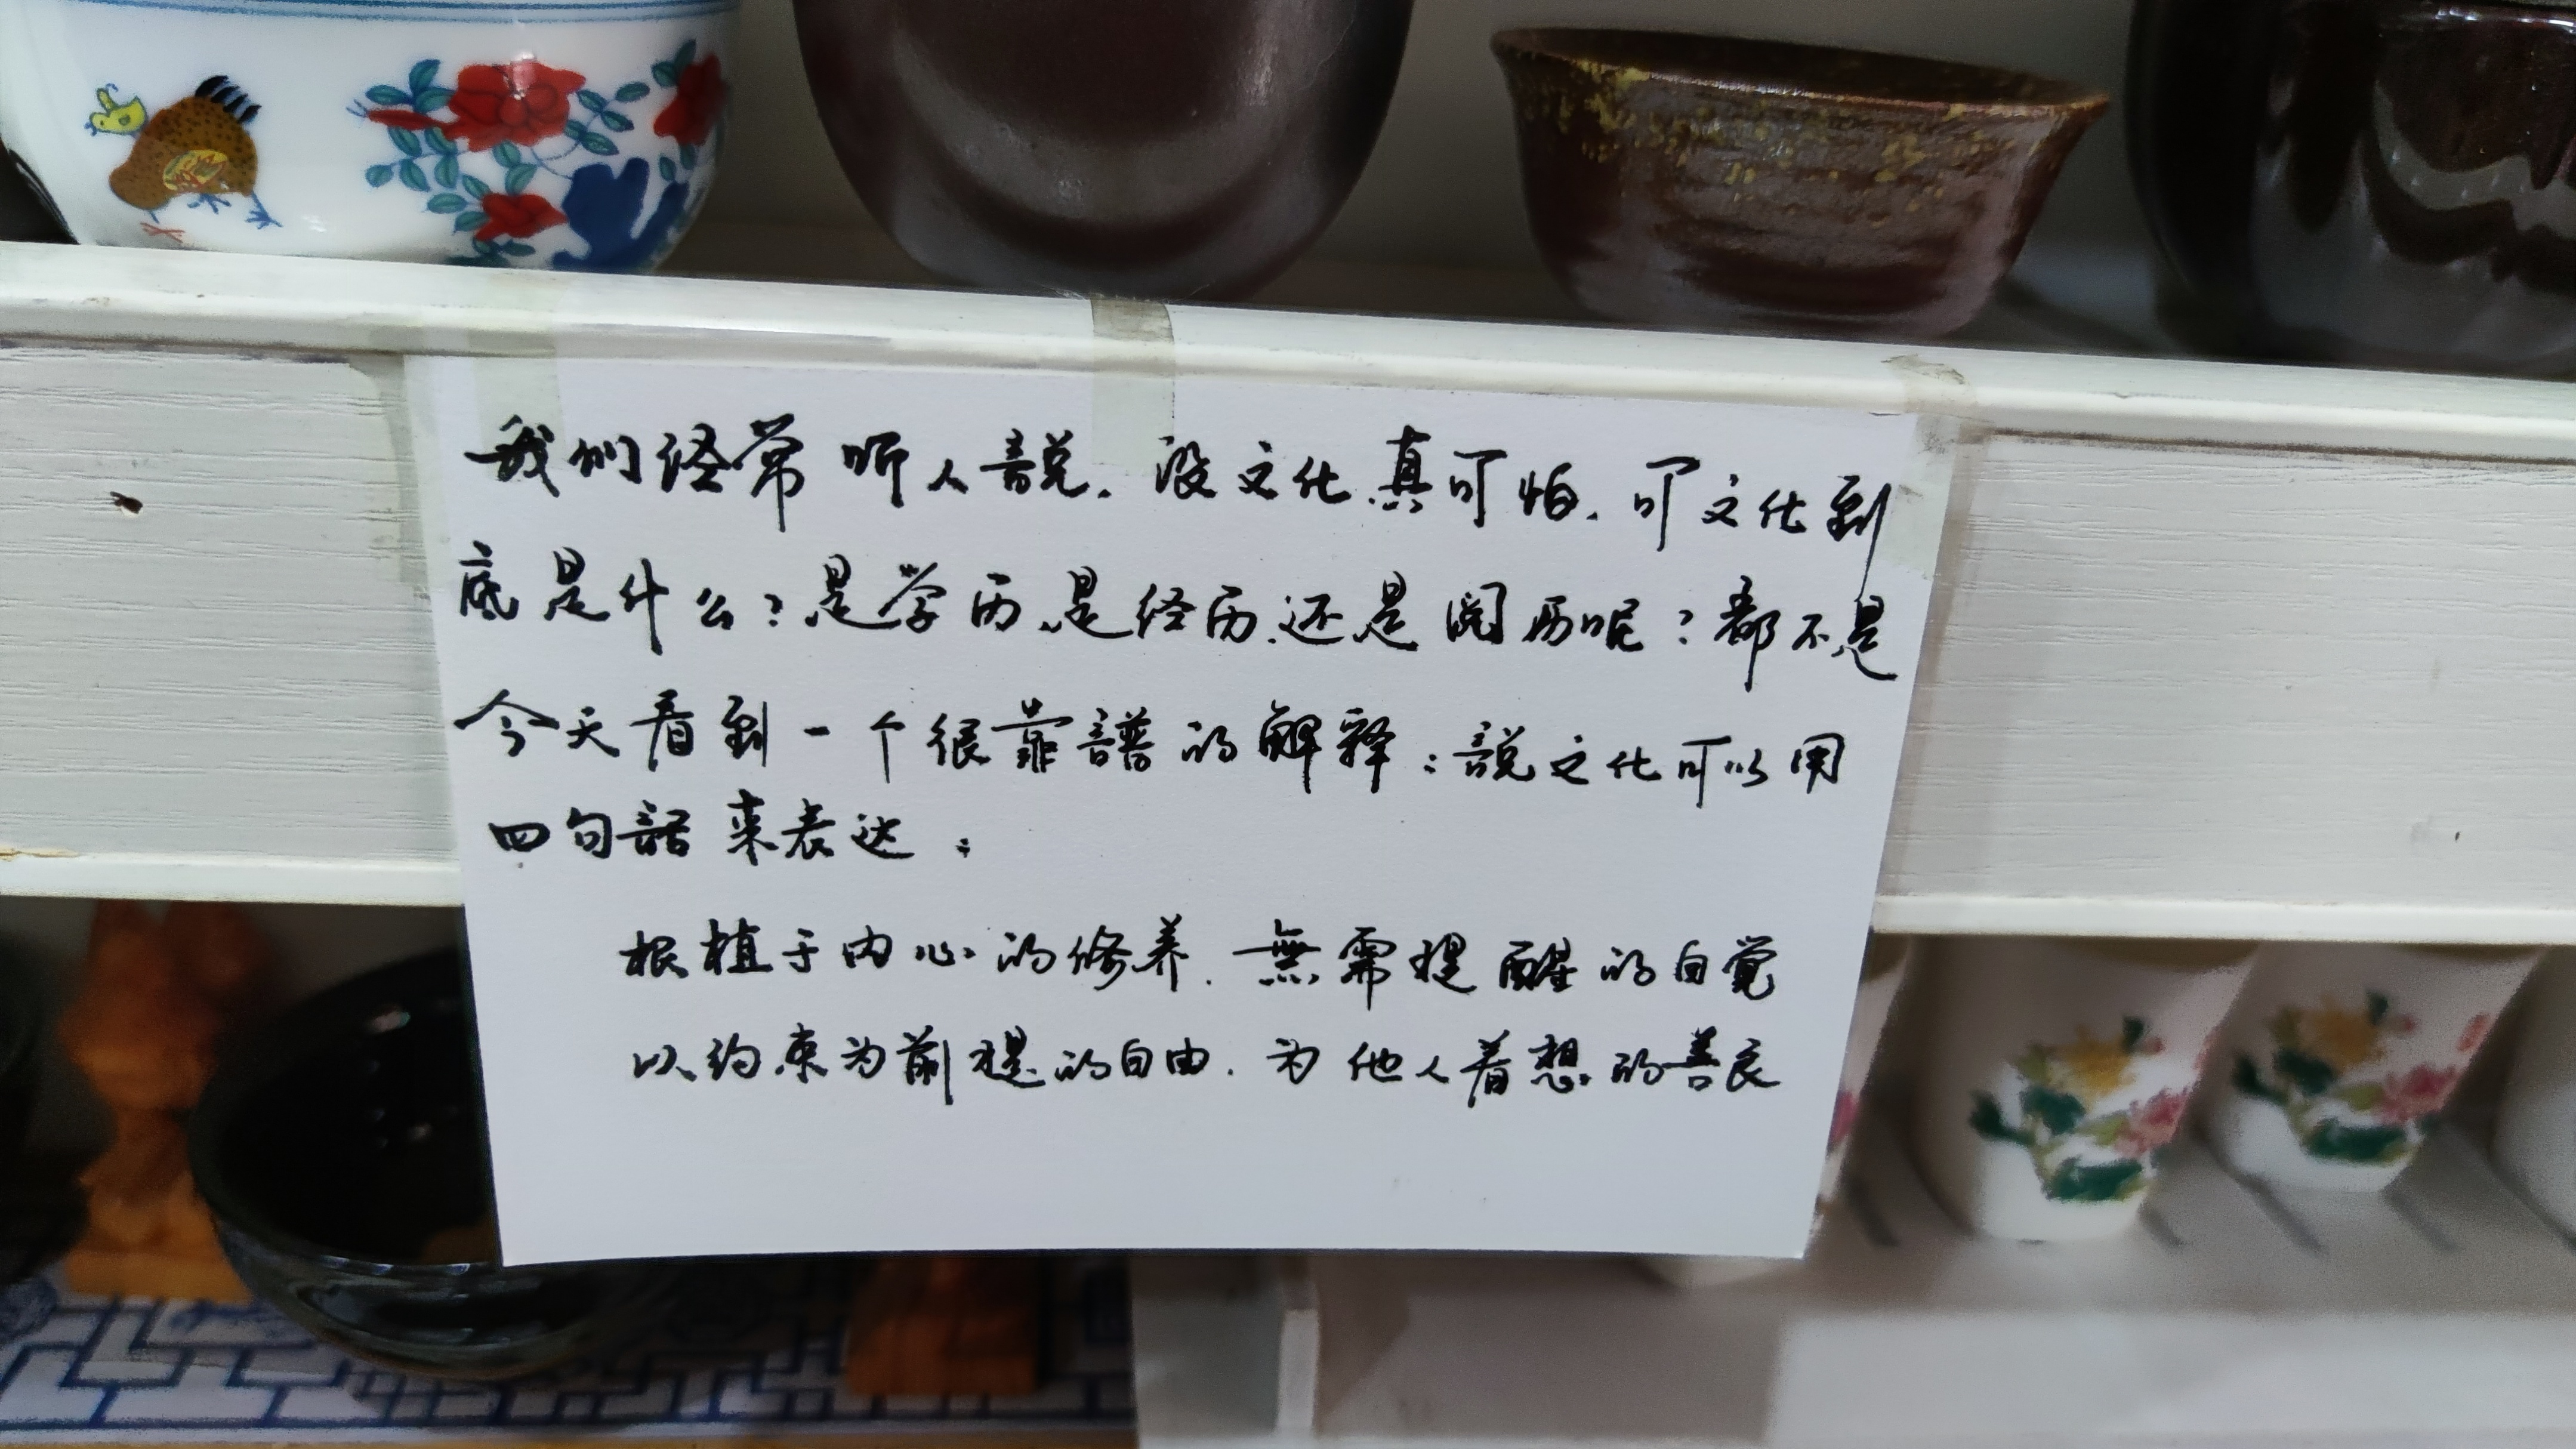 我们经常听人説. 没文化真可怕. 可文化到
底是什么?是学历、是经历.还是阅历呢?都不是
今天看到一个很靠譜的解释:説文化可以用
四句話来表达:
根植于内心的修养. 無需提醒的自觉
以约束为前提的自由. 为他人着想的善良